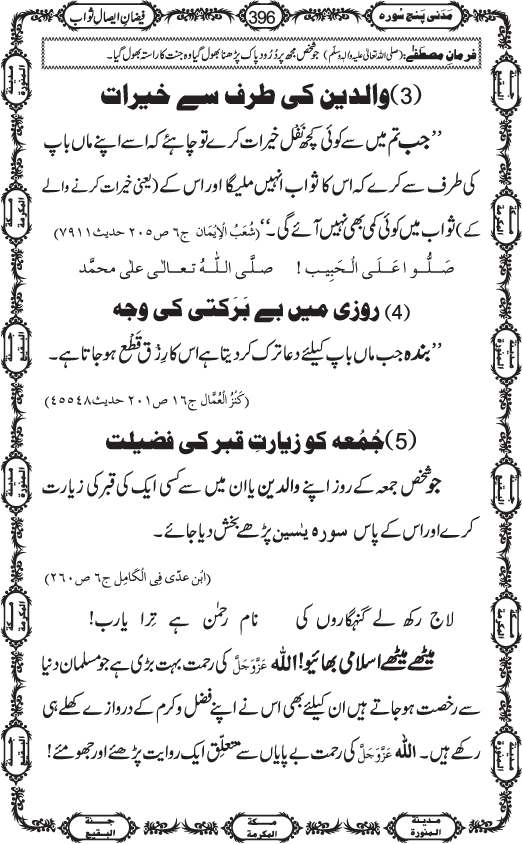 مَدَنی پنج سُورہ 396 فیضانِ ایصالِ ثواب
فرمانِ مصطفٰے: (صلی اللہ تعالیٰ علیہ واٰلہٖ وسلم) جو شخص مجھ پر دُرُود پاک پڑھنا بھول گیا وہ جنت کا راستہ بھول گیا۔
(3) والدین کی طرف سے خیرات
’’جب تم میں سے کوئی کچھ نَفْل خیرات کرے تو چاہئے کہ اسے اپنے ماں باپ
کی طرف سے کرے کہ اس کا ثواب انہیں ملیگا اور اس کے (یعنی خیرات کرنے والے
کے) ثواب میں کوئی کمی بھی نہیں آئے گی۔‘‘ (شُعَبُ الْاِیْمَان ج٦ ص٢٠٥ حدیث ٧٩١١)
صَلُّوا عَلَی الْحَبِیب! صلَّی اللّٰہُ تعالٰی علٰی محمَّد
(4) روزی میں بے بَرَکتی کی وجہ
’’بندہ جب ماں باپ کیلئے دعا ترک کر دیتا ہے اس کا رِزْق قَطْع ہو جاتا ہے۔
(کَنْزُ الْعُمَّال ج١٦ ص٢٠١ حدیث ٤٥٥٤٨)
(5) جُمُعہ کو زیارتِ قبر کی فضیلت
جو شخص جمعہ کے روز اپنے والدین یا ان میں سے کسی ایک کی قبر کی زیارت
کرے اور اس کے پاس سورہ یٰسین پڑھے بخش دیا جائے۔
(ابن عدّی فِی الْکَامِل ج٦ ص٢٦٠)
لاج رکھ لے گنہگاروں کی نام رحمٰن ہے تِرا یارب!
میٹھے میٹھے اسلامی بھائیو! اللہ عَزَّوَجَلَّ کی رحمت بہت بڑی ہے جو مسلمان دنیا
سے رخصت ہو جاتے ہیں ان کیلئے بھی اس نے اپنے فضل و کرم کے دروازے کھلے ہی
رکھے ہیں۔ اللہ عَزَّوَجَلَّ کی رحمتِ بے پایاں سے متعلق ایک روایت پڑھئے اور جھومئے!
مدینة المنورة
مکة المکرمة
جنة البقیع
مدینة المنورة
مکة المکرمة
جنة البقیع
جنة البقیع
مکة المکرمة
مدینة المنورة
جنة البقیع
مکة المکرمة
مدینة المنورة
جنة البقیع
مکة المکرمة
مدینة المنورة